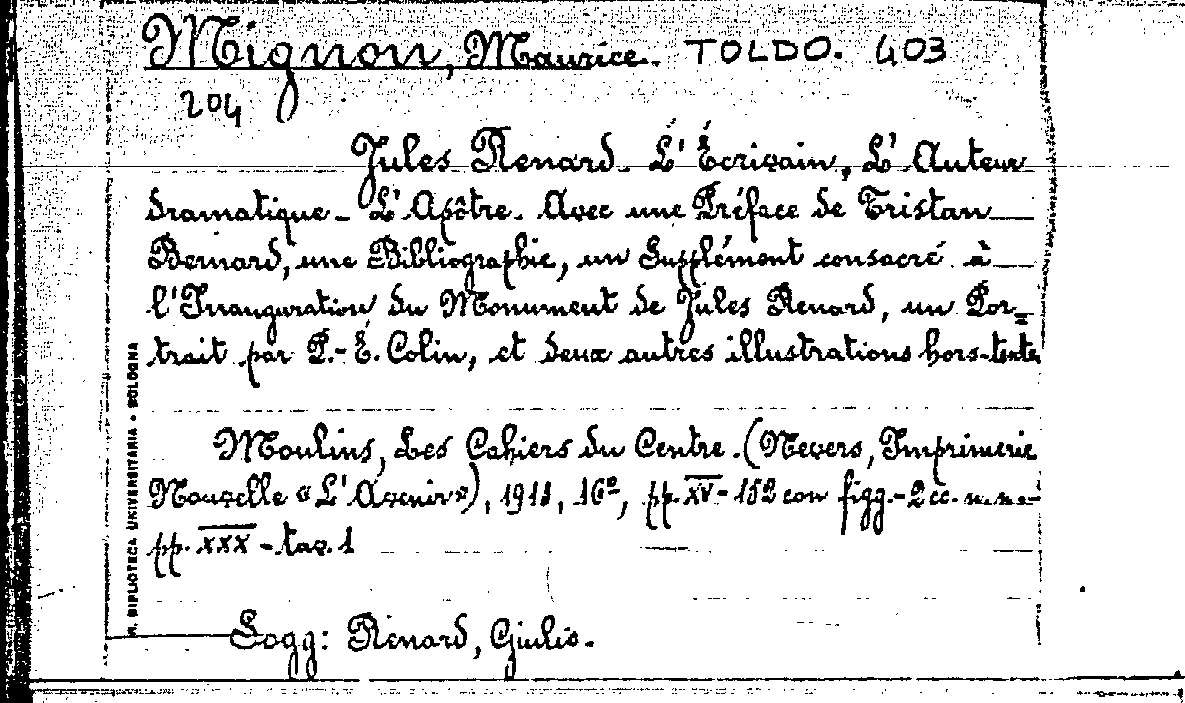 Mignon, Maurice. TOLDO. 403
204
Jules Renard. L'Écrivain, L'Auteur
dramatique - L'Apôtre. Avec une Préface de Tristan
Bernard, une Bibliographie, un Supplément consacré à
l'Inauguration du Monument de Jules Renard, un Por=
trait par P.-É. Colin, et deux autres illustrations hors-texte
Moulins, Les Cahiers du Centre. (Nevers, Imprimerie
Nouvelle «L'Avenir»), 1913, 16º, pp. XV-152 con figg.-2 cc. n.n.-
pp. XXX - tav. 1
Sogg: Renard, Giulio.
R. BIBLIOTECA UNIVERSITARIA - BOLOGNA